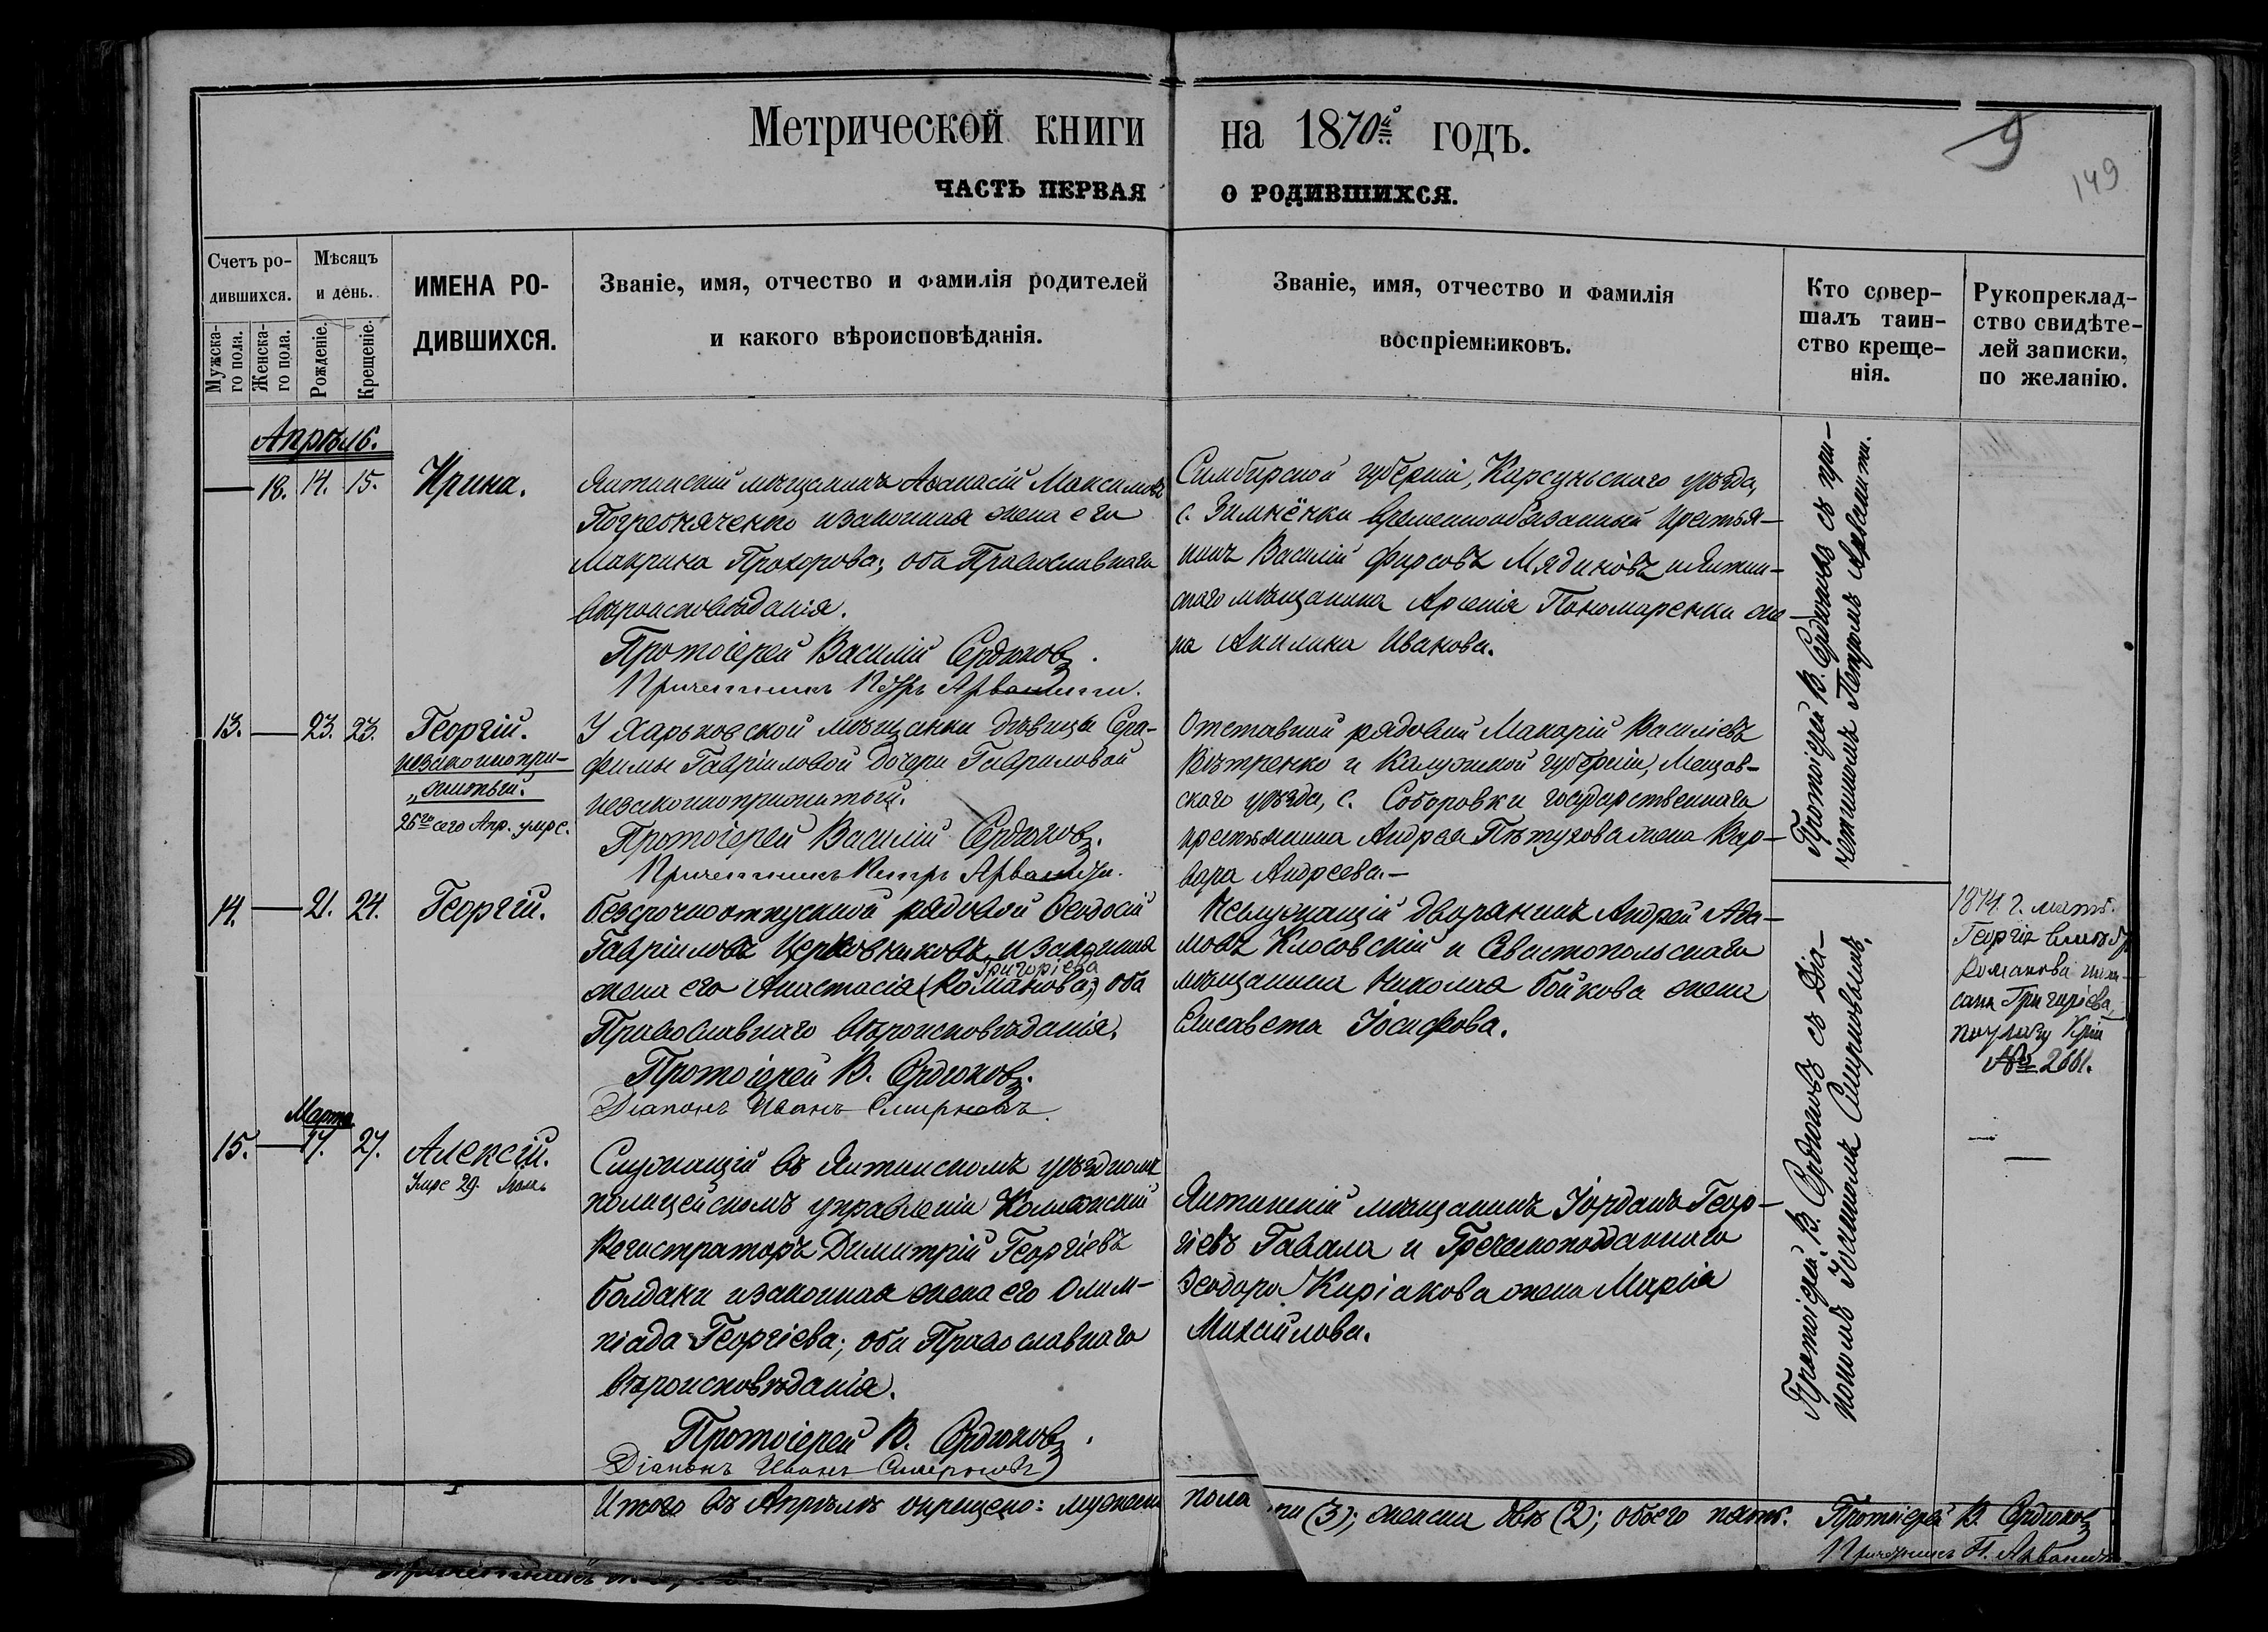 Метрической книги на 1870й годъ.
9
149
ЧАСТЬ ПЕРВАЯ О РОДИВШИХСЯ.
Счетъ ро-
дившихся.
Мужска-
го пола.
Женска-
го пола.
Мѣсяцъ
и день.
Рожденіе.
Крещеніе.
ИМЕНА РО-
ДИВШИХСЯ.
Званіе, имя, отчество и фамилія родителей
и какого вѣроисповѣданія.
Званіе, имя, отчество и фамилія
воспріемниковъ.
Кто совер-
шалъ таин-
ство креще-
нія.
Рукоприклад-
ство свидѣте-
лей записки,
по желанію.
Апрѣль.
— 18. 14. 15. Ирина.
Ялтинскій мѣщанинъ Аѳанасій Максимовъ
Погребняченко и законная жена его
Макрина Прохорова; оба Православнаго
вѣроисповѣданія.
Протоіерей Василій Сердюковъ.
Причетникъ Петръ
Симбирской губерніи, Карсуньскаго уѣзда,
с. Зимнёнки временнообязанный крестья-
нинъ Василій Фирсовъ Мядиковъ и Ялтин-
скаго мѣщанина Арсенія Пономаренки же-
на Акилина Иванова.
Протоіерей В. Сердюковъ съ при-
четникомъ Петромъ
13. — 23. 23. Георгій.
незаконнопри-
житый.
26го сего Апр. умре.
У Харьковской мѣщанки дѣвицы Сера-
фимы Гавріиловой дочери Гавриловой
незаконноприжитый.
Протоіерей Василій Сердюковъ.
Причетникъ Петръ
Отставной рядовой Макарій Василіевъ
Вѣтренко и Калужской губерніи, Мещов-
скаго уѣзда, с. Соборовки государственнаго
крестьянина Андрея Пѣтухова жена Вар-
вара Андреева.—
14. — 21. 24. Георгій.
Безсрочноотпускной рядовой Ѳеодосій
Гавріиловъ Церковниковъ и законная
Григоріева
жена его Анастасія (Романова); оба
Православнаго вѣроисповѣданія.
Протоіерей В. Сердюковъ.
Діаконъ Иванъ Смирновъ.
Неслужащій дворянинъ Андрей Ада-
мовъ Клосовскій и Севастопольскаго
мѣщанина Николая Бойкова жена
Елисавета Іосифова.
Протоіерей В. Сердюковъ съ Діа-
кономъ Іоанномъ Смирновымъ.
1874 г. мать
Георгія вмѣсто
Романова напи-
сана Григоріева,
по указу
№ 2661.
Марта
15. — 17. 27. Алексій.
Умре 29.
Служащій въ Ялтинскомъ уѣздномъ
полицейскомъ управленіи Коллежскій
Регистраторъ Димитрій Георгіевъ
Болдаки и законная жена его Олим-
піада Георгіева; оба Православнаго
вѣроисповѣданія.
Протоіерей В. Сердюковъ.
Діаконъ Иванъ Смирновъ
Ялтинскій мѣщанинъ Іорданъ Геор-
гіевъ Гавала и Греческоподданнаго
Ѳеодора Киріакова жена Марія
Михайлова.
Итого въ Апрѣлѣ окрещено: мужеска пола (3); женска двѣ (2); обоего пять. Протоіерей В. Сердюковъ
Причетникъ П.